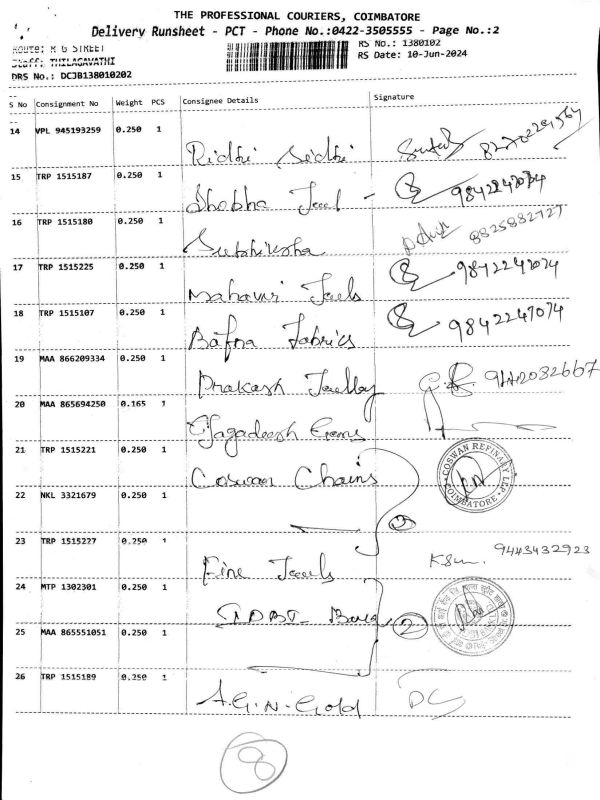 THE PROFESSIONAL COURIERS, COIMBATORE
Delivery Runsheet - PCT - Phone No.:0422-3505555 - Page No.:2
Route: R G STREET RS No.: 1380102
Staff: THILAGAVATHI RS Date: 10-Jun-2024
DRS No.: DCJB138010202
S No Consignment No Weight PCS Consignee Details Signature
14 VPL 945193259 0.250 1 Ridhi Sidhi
15 TRP 1515187 0.250 1 Shobha Jewel - 9842247074
16 TRP 1515180 0.250 1 Subhiksha 8825882727
17 TRP 1515225 0.250 1 Mahaveer Jewels 9842247074
18 TRP 1515107 0.250 1 Bafna Fabrics 9842247074
19 MAA 866209334 0.250 1 Prakash
20 MAA 865694250 0.165 1 Jagadeesh Gems
21 TRP 1515221 0.250 1 Coswan Chains COSWAN REFINARY LLP COIMBATORE
22 NKL 3321679 0.250 1 2
23 TRP 1515227 0.250 1 Fine Jewels 9443432923
24 MTP 1302301 0.250 1 2
25 MAA 865551051 0.250 1
26 TRP 1515189 0.250 1 A.G.N. Gold
8